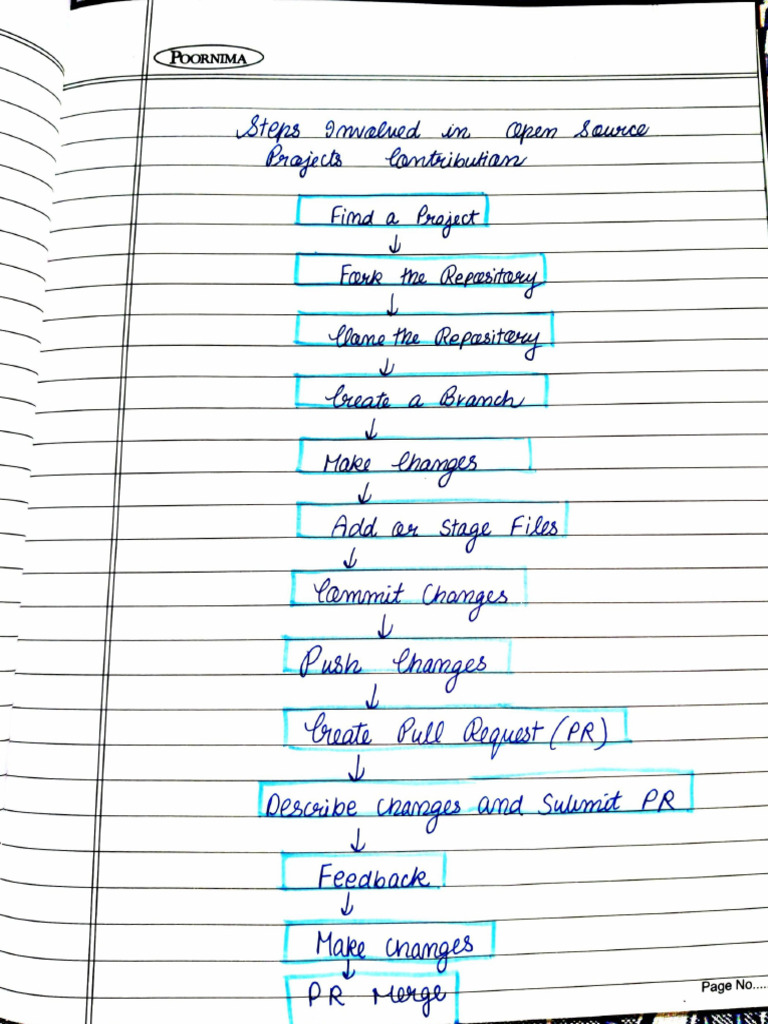 POORNIMA
Steps Involved in Open Source
Projects Contribution
Find a Project
↓
Fork the Repository
↓
Clone the Repository
↓
Create a Branch
↓
Make Changes
↓
Add or Stage Files
↓
Commit Changes
↓
Push Changes
↓
Create Pull Request (PR)
↓
Describe Changes and Submit PR
↓
Feedback
↓
Make Changes
↓
PR Merge
Page No.....